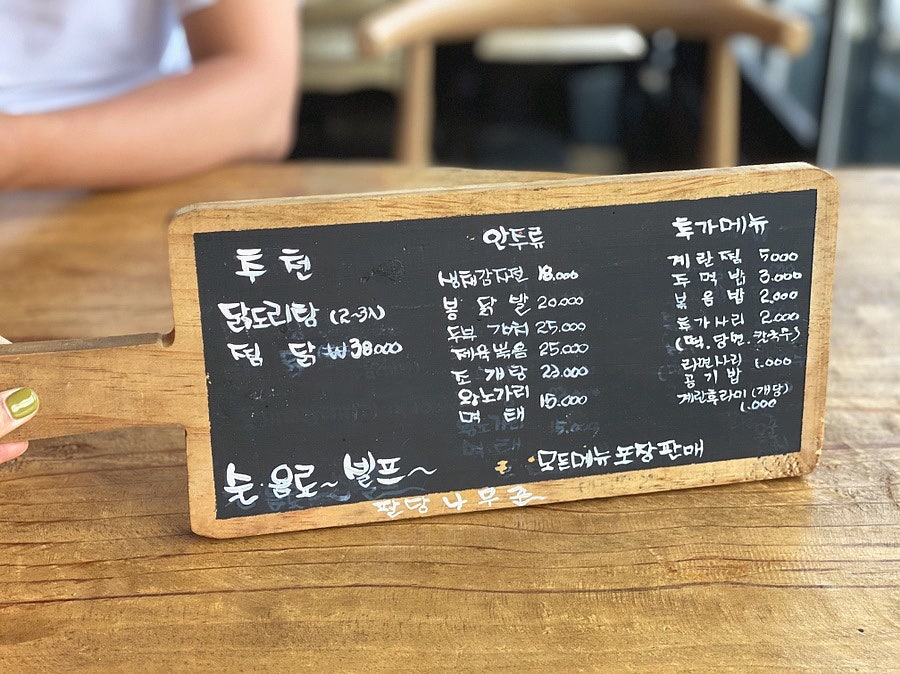 추천
닭도리탕 (2~3人)
찜닭 ₩38000
술·음료~셀프~
안주류
생채감자전 18.000
불닭발 20.000
두부김치 25.000
제육볶음 25.000
조개탕 23.000
왕노가리
명태 15.000
추가메뉴
계란찜 5000
주먹밥 3.000
볶음밥 2.000
추가사리 2.000
(떡.당면.칼국수)
라면사리 1.000
공기밥
계란후라이 (개당)
1.000
모든메뉴 포장판매
팔당나무